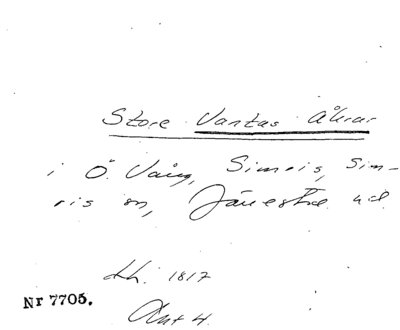 Store Vantas Åkrar
i Ö. Vång, Simris, Sim-
ris sn, Järrestad hd.
Lh. 1817
Nr 7705.
Akt 4.